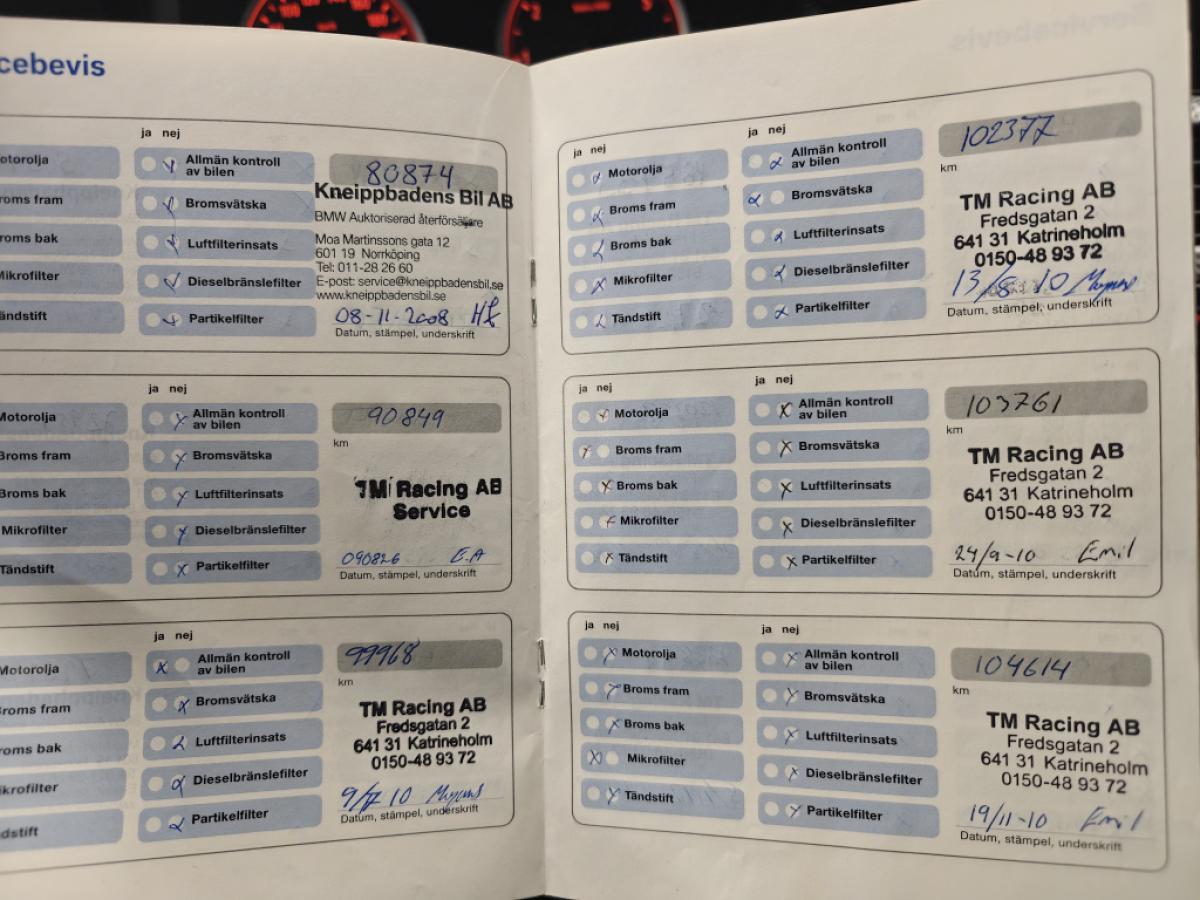 cebevis
ja nej
otorolja
roms fram
roms bak
Mikrofilter
ändstift
Allmän kontroll
av bilen
Bromsvätska
Luftfilterinsats
Dieselbränslefilter
Partikelfilter
80874
Kneippbadens Bil AB
BMW Auktoriserad återförsäljare
Moa Martinssons gata 12
601 19 Norrköping
Tel: 011-28 26 60
E-post: service@kneippbadensbil.se
www.kneippbadensbil.se
08-11-2008
Datum, stämpel, underskrift
ja nej
Motorolja
Broms fram
Broms bak
Mikrofilter
Tändstift
Allmän kontroll
av bilen
Bromsvätska
Luftfilterinsats
Dieselbränslefilter
Partikelfilter
90849
km
TM Racing AB
Service
090826 E.A
Datum, stämpel, underskrift
ja nej
Motorolja
roms fram
roms bak
ikrofilter
dstift
Allmän kontroll
av bilen
Bromsvätska
Luftfilterinsats
Dieselbränslefilter
Partikelfilter
99968
km
TM Racing AB
Fredsgatan 2
641 31 Katrineholm
0150-48 93 72
9/7 10
Datum, stämpel, underskrift
ja nej
Motorolja
Broms fram
Broms bak
Mikrofilter
Tändstift
ja nej
Allmän kontroll
av bilen
Bromsvätska
Luftfilterinsats
Dieselbränslefilter
Partikelfilter
102377
km
TM Racing AB
Fredsgatan 2
641 31 Katrineholm
0150-48 93 72
13/8 10
Datum, stämpel, underskrift
ja nej
Motorolja
Broms fram
Broms bak
Mikrofilter
Tändstift
ja nej
Allmän kontroll
av bilen
Bromsvätska
Luftfilterinsats
Dieselbränslefilter
Partikelfilter
103761
km
TM Racing AB
Fredsgatan 2
641 31 Katrineholm
0150-48 93 72
24/9-10 Emil
Datum, stämpel, underskrift
ja nej
Motorolja
Broms fram
Broms bak
Mikrofilter
Tändstift
ja nej
Allmän kontroll
av bilen
Bromsvätska
Luftfilterinsats
Dieselbränslefilter
Partikelfilter
104614
km
TM Racing AB
Fredsgatan 2
641 31 Katrineholm
0150-48 93 72
19/11-10 Emil
Datum, stämpel, underskrift